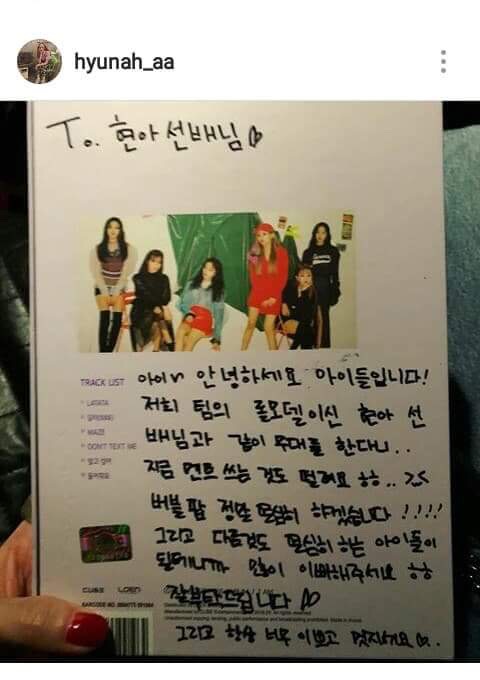 hyunah_aa
To. 현아선배님♡
TRACK LIST
LATATA
MAZE
DON'T TEXT ME
알고 싶어
들어줘요
아이n 안녕하세요 아이들입니다!
저희 팀의 롤모델이신 현아 선
배님과 같이 무대를 한다니..
지금 멘트 쓰는 것도 떨려요 ㅎㅎ.. >.<
버블 팝 정말 열심히 하겠습니다 !!!!
그리고 다른것도 열심히 하는 아이들이
될테니까 많이 이뻐해주세요 ㅎㅎ
잘부탁드립니다 ♡
그리고 항상 너무 이쁘고 멋지세요♡.
CUBE LOEN